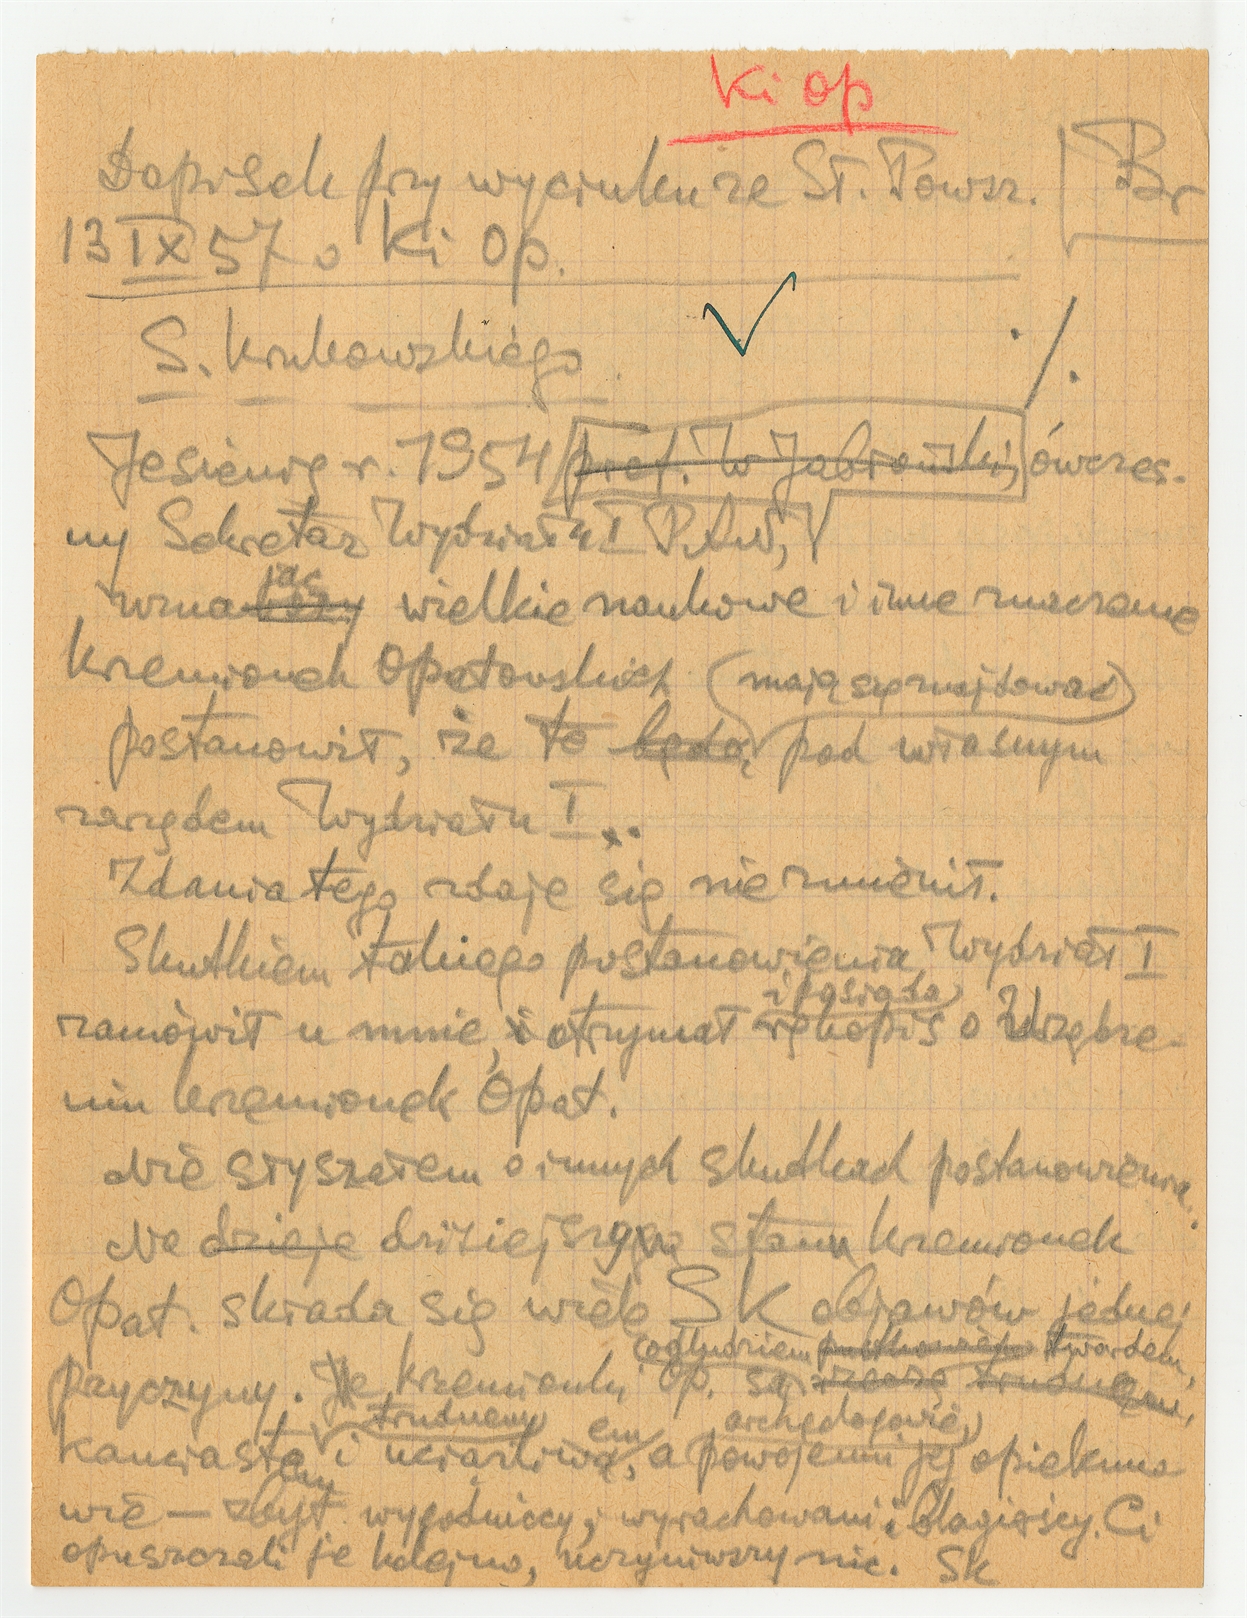 Ki op
Dopisek przy wycinku ze St. Powsz.
Br
13 IX 57 o Ki Op.
S. Krukowskiego
./.
Jesienią r. 1954 prof. W Jabłoński, ówczes-
ny Sekretarz Wydziału I PAN,
jąc
uznawszy wielkie naukowe i inne znaczenie
krzemionek Opatowskich (mają się znajdować)
postanowił, że to będą pod własnym
zarządem Wydziału I..
Zdania tego zdaje się nie zmienił.
Skutkiem takiego postanowienia Wydział I
i posiada
zamówił u mnie, i otrzymał rękopis o Urządze-
niu krzemionek Opat.
Nie słyszałem o innych skutkach postanowienia.
Na dzieje dzisiejszy stan krzemionek
Opat. składa się wiele SK objawów jednej
oglądziem twardem,
przyczyny. Że krzemionki Op. są rzeczą trudną
trudnem em archeologowie,
kanciastą i uciążliwą, a powojenni jej opiekuno-
em
wie — zbyt wygodniccy, wyrachowani i blagierscy. Ci
opuszczali je kolejno, uczyniwszy nic. SK